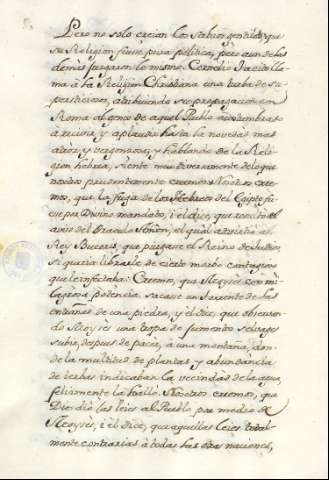 Pero no solo creian los Sabios gentiles que
su Religion fuese pura politica, pero aun de las
demas juzgaron lo mismo. Cornelio Tacito lla-
ma à la Religion Christiana una turba de su-
persticiones, atribuiendo su propagacion en
Roma al genio de aquel Pueblo acostumbrado
a recivir y aplaudir hasta la novedad mas
atroz, y vergonzosa; y hablando de la Reli-
gion hebrea, siente mui diversamente de lo que
nosotros prudentemente creemos. Nosotros cree-
mos, que la fuga de los Hebreos del Egipto fu-
e por Divino mandato, i el dice, que executò el
aviso del Oraculo Amòn, el qual advirtiò al
Rey Bucoris, que purgase el Reino de Judios,
si queria librarle de cierto morbo contagioso
que le infectaba: Creemos, que Moyses con mi-
lagrosa potencia, sacase un torrente de las
entrañas de una piedra, y el dice que observan-
do Moyses una tropa de jumentos selvages
subir, despues de pacer, à una montaña, don-
de la multitud de plantas y abundancia
de ierbas indicaban la vecindad de la agua,
felizmente la hallò. Nosotros creemos, que
Dios diò las leies al Pueblo por medio de
Moyses, i èl dice, que aquellas leies total-
mente contrarias à todas las otras naciones,